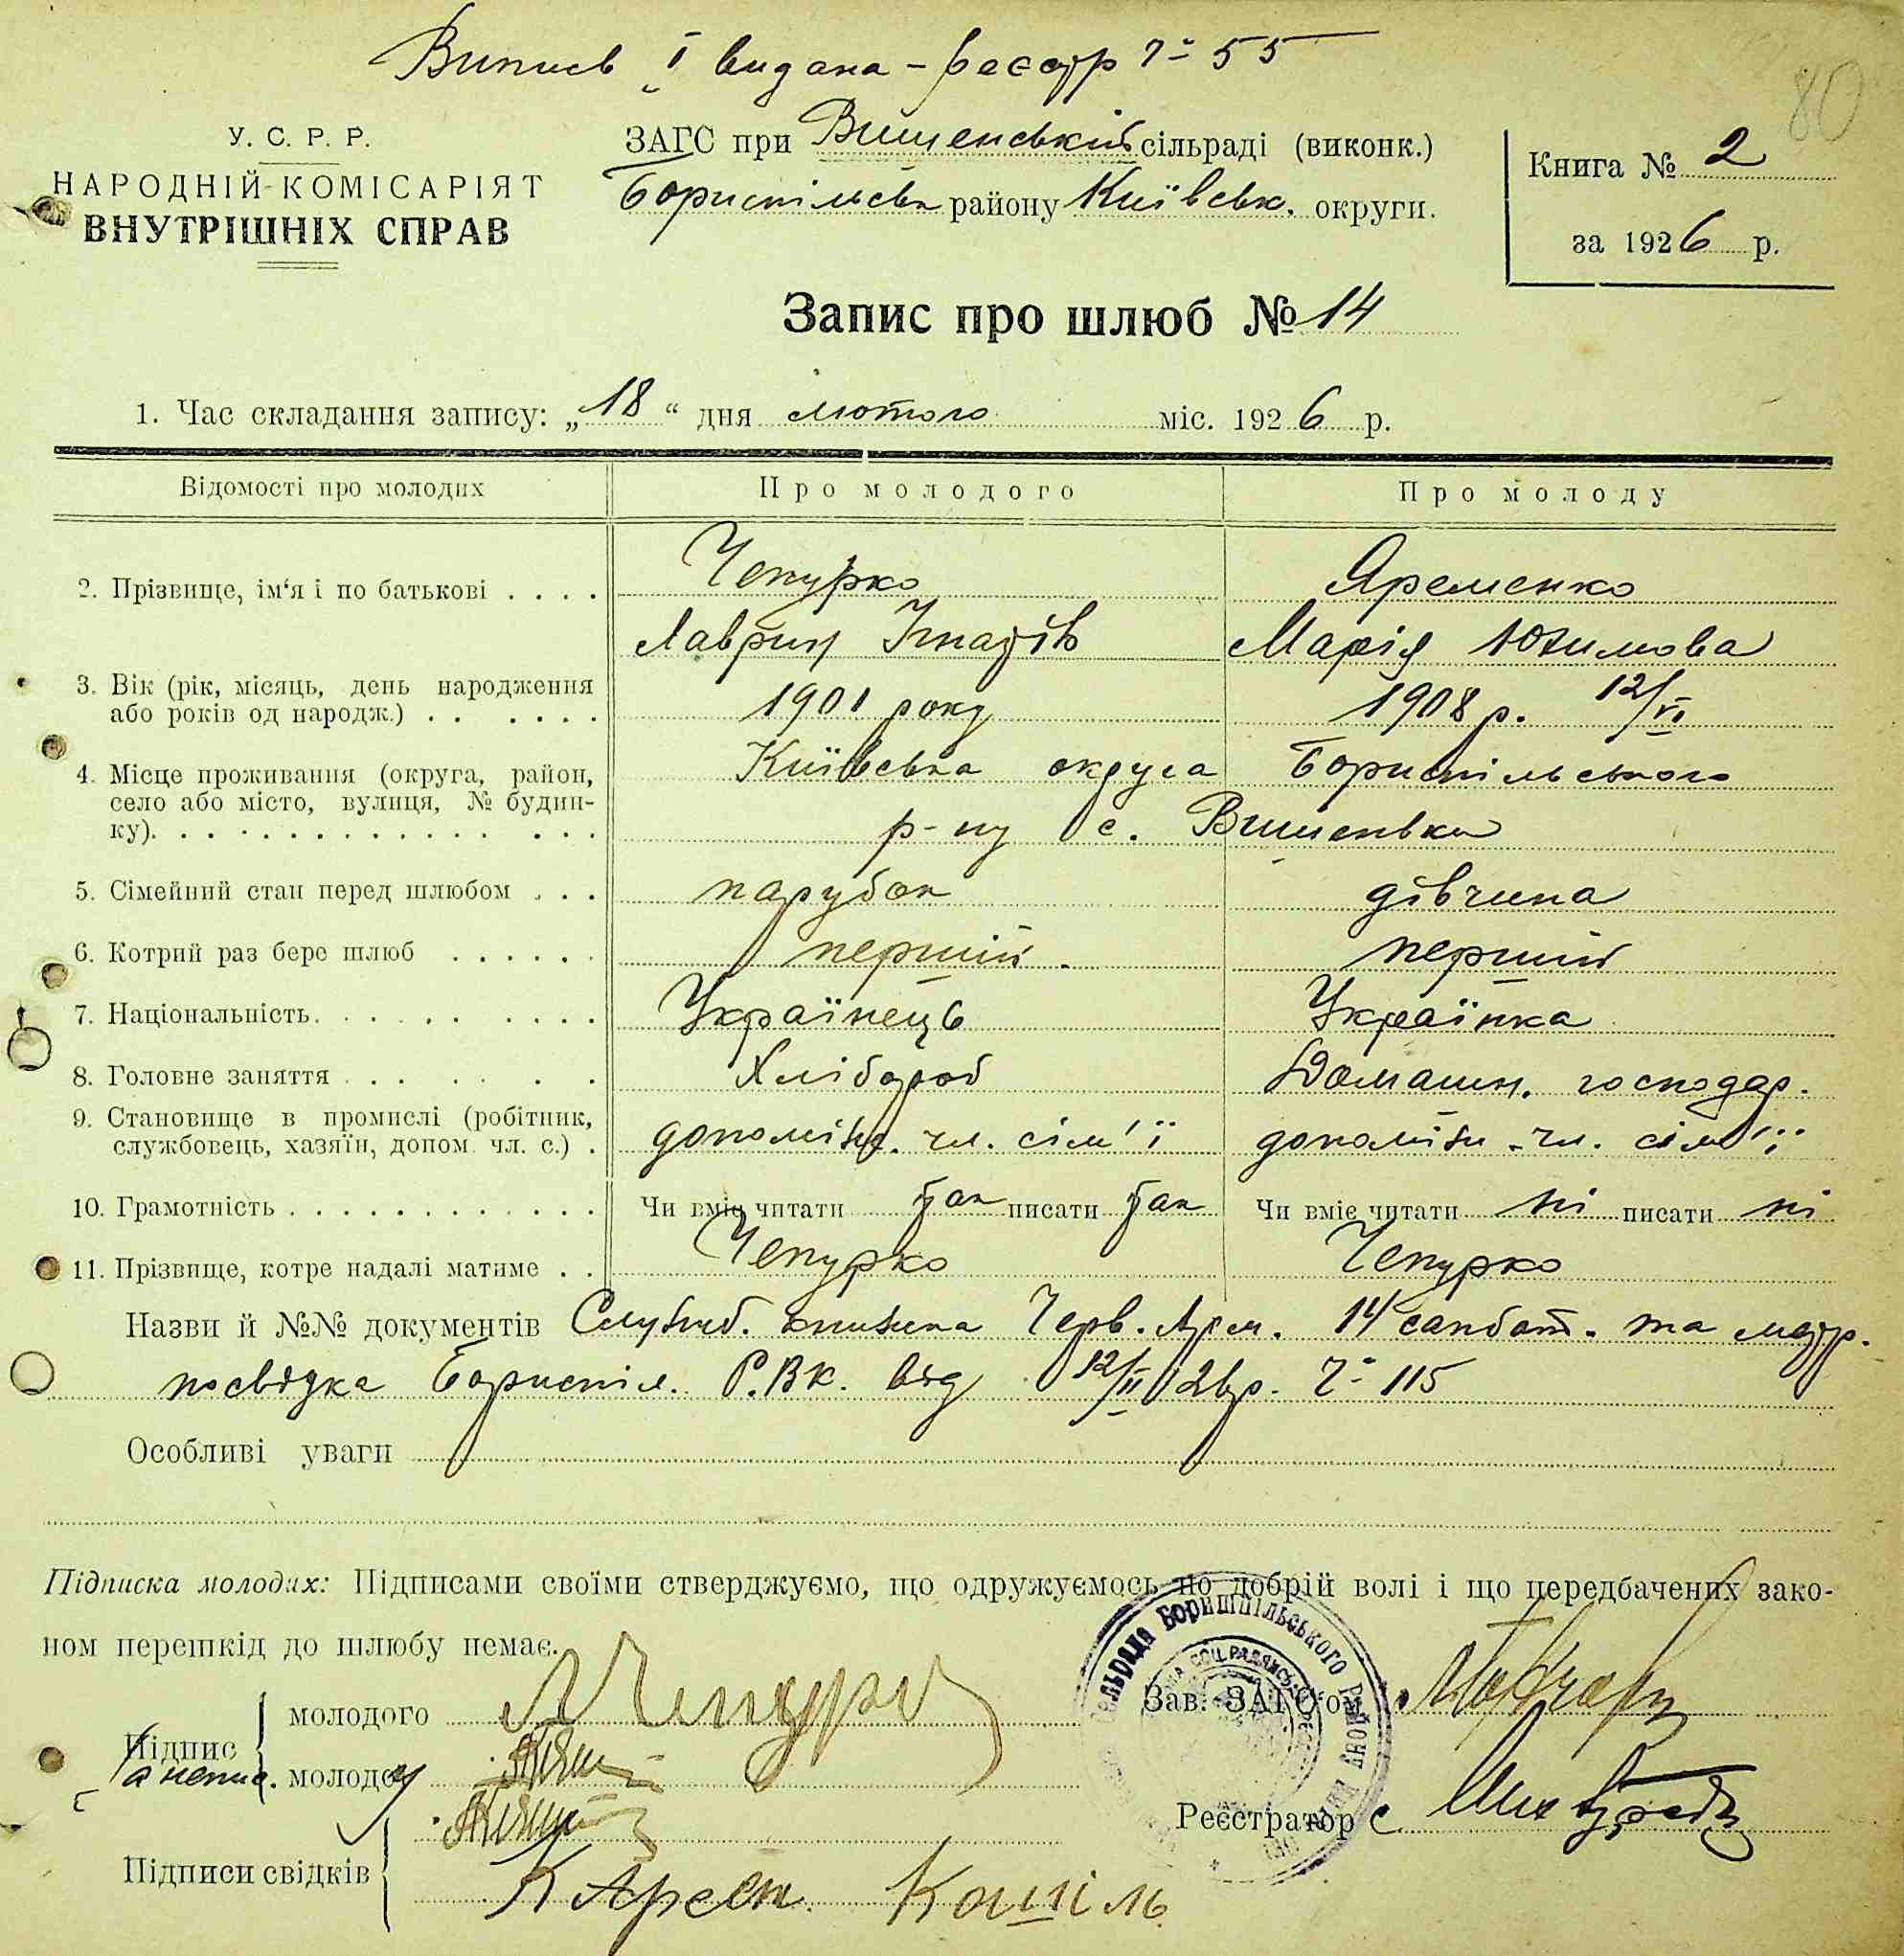 Випись І видана – реєстр Ч– 55
80
У. С. Р. Р.
НАРОДНІЙ КОМІСАРІЯТ
ВНУТРІШНІХ СПРАВ
ЗАГС при Вишенській сільраді (виконк.)
Бориспільськ району Київськ. округи.
Книга № 2
за 1926 р.
Запис про шлюб № 14
1. Час складання запису: „18“ дня лютого міс. 1926 р.
Відомості про молодих
Про молодого
Про молоду
2. Прізвище, ім'я і по батькові . . . .
Чепурко
Яременко
Лаврин Гнатів
Марія Юхимова
3. Вік (рік, місяць, день народження
або років од народж.) . . . . . .
1901 року
1908 р. 12/VI
4. Місце проживання (округа, район,
село або місто, вулиця, № будин-
ку). . . . . . . . . . . . . . .
Київська округа Бориспільського
р-ну с. Вишеньки
5. Сімейний стан перед шлюбом . . .
парубок
дівчина
6. Котрий раз бере шлюб . . . . . .
перший.
перший
7. Національність. . . . . . . . . .
Українець
Українка
8. Головне заняття . . . . . . .
Хлібороб
Домашн. господар.
9. Становище в промислі (робітник,
службовець, хазяїн, допом. чл. с.) .
допоміжн. чл. сім'ї
допоміжн. чл. сім'ї
10. Грамотність . . . . . . . . . . . .
Чи вміє читати так писати так
Чи вміє читати ні писати ні
11. Прізвище, котре надалі матиме . .
Чепурко
Чепурко
Назви й №№ документів Служб. книжка Черв. Арм. 14 санбат. та метр.
посвідка Бориспіл. Р.В.К. від 12/II 26р. Ч– 115
Особливі уваги
Підписка молодих: Підписами своїми стверджуємо, що одружуємось по добрій волі і що передбачених зако-
ном перешкід до шлюбу немає.
Підпис
молодого
Зав. ЗАГС'ом
а непис. молодої
Реєстратор
Підписи свідків
К Арсен Кошіль
Сельрада Боришпільського Району